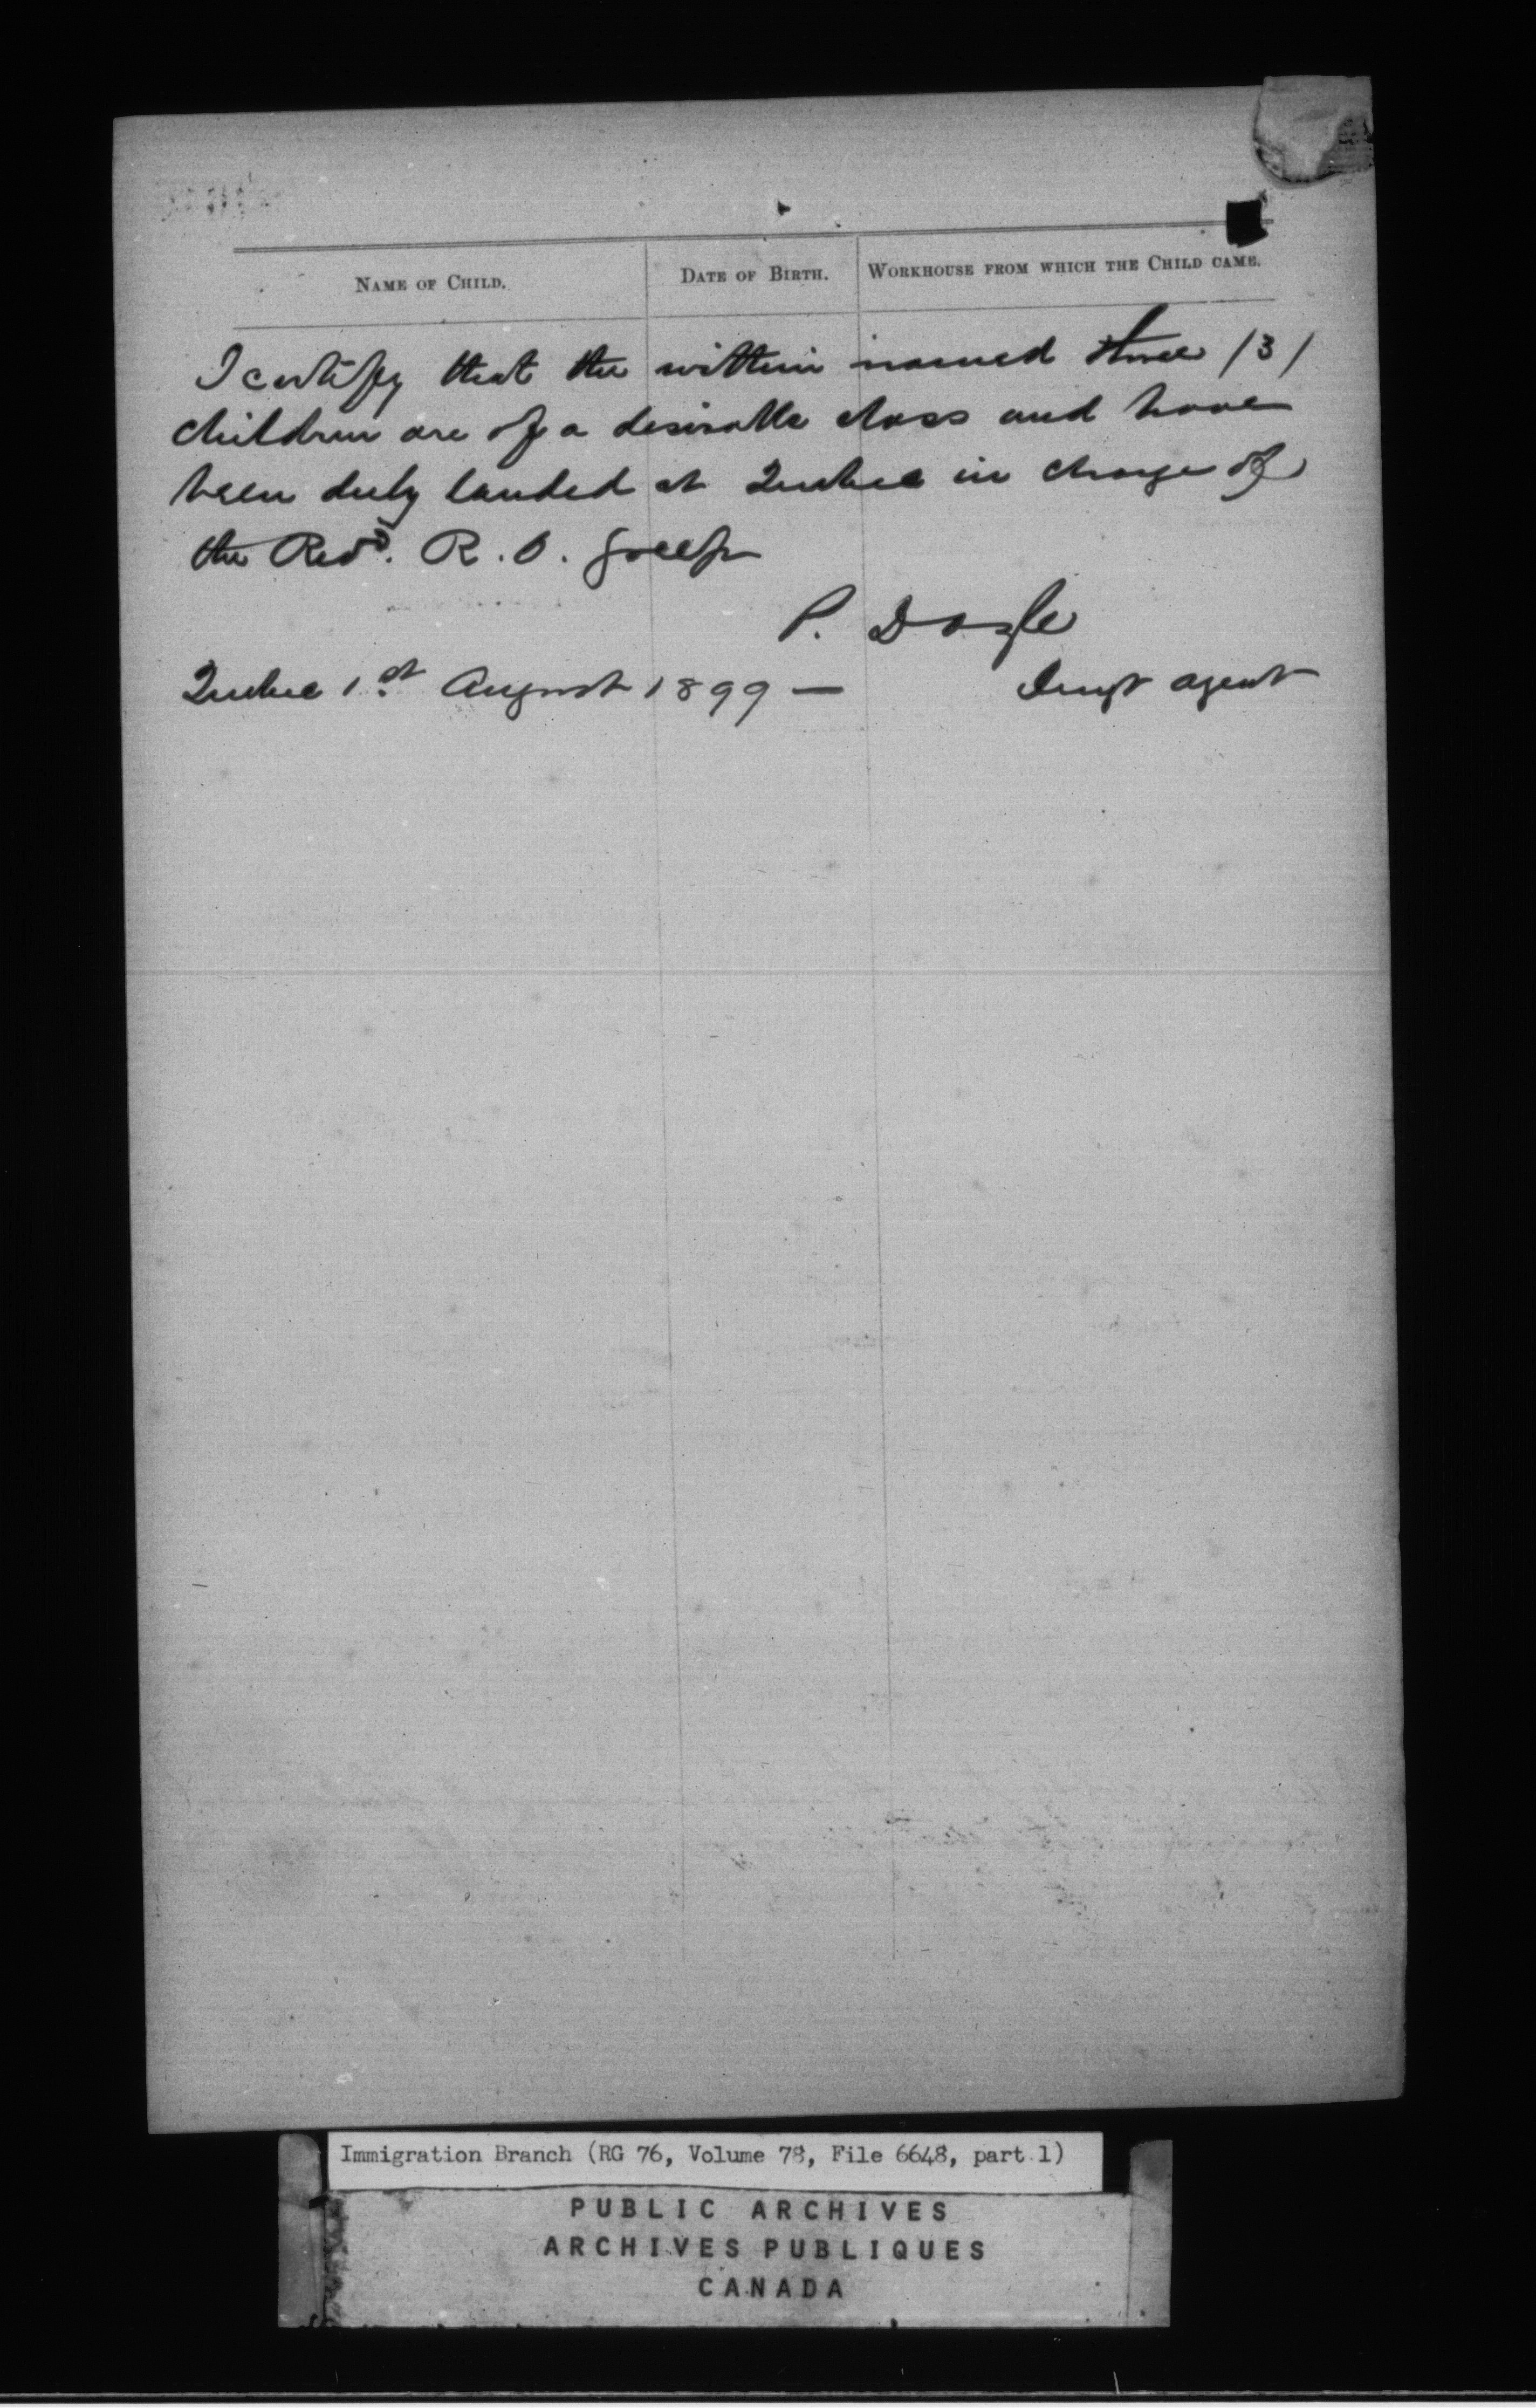 NAME OF CHILD. DATE OF BIRTH. WORKHOUSE FROM WHICH THE CHILD CAME.
I certify that the within named three /3/
children are of a desirable class and have
been duly landed at Quebec in charge of
the Revd. R. O.
P. Doyle
Quebec 1st August 1899 — Immgt agent
Immigration Branch (RG 76, Volume 78, File 6648, part 1)
PUBLIC ARCHIVES
ARCHIVES PUBLIQUES
CANADA